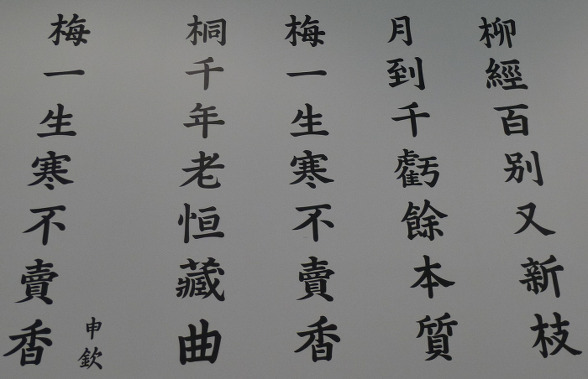 梅一生寒不賣香
申欽
桐千年老恒藏曲
梅一生寒不賣香
月到千虧餘本質
柳經百别又新枝